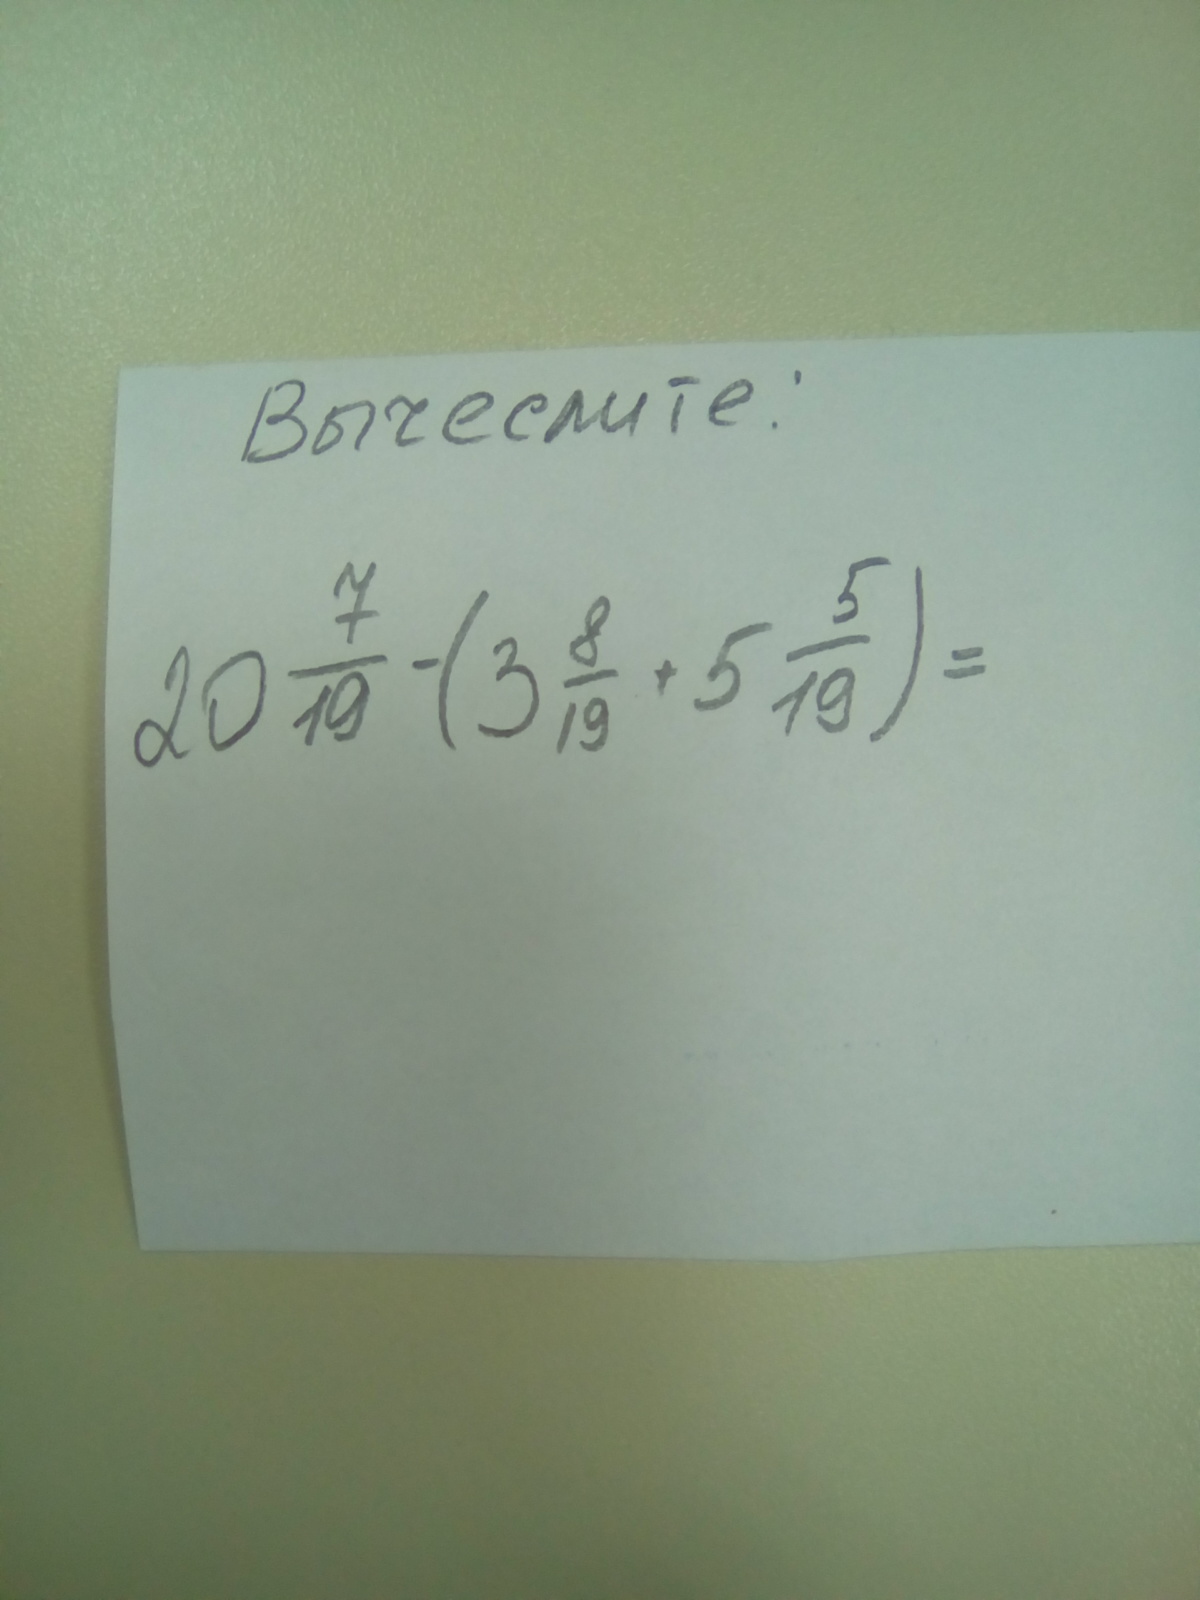 Вычеслите:
20 7/19 - (3 8/19 + 5 5/19) =